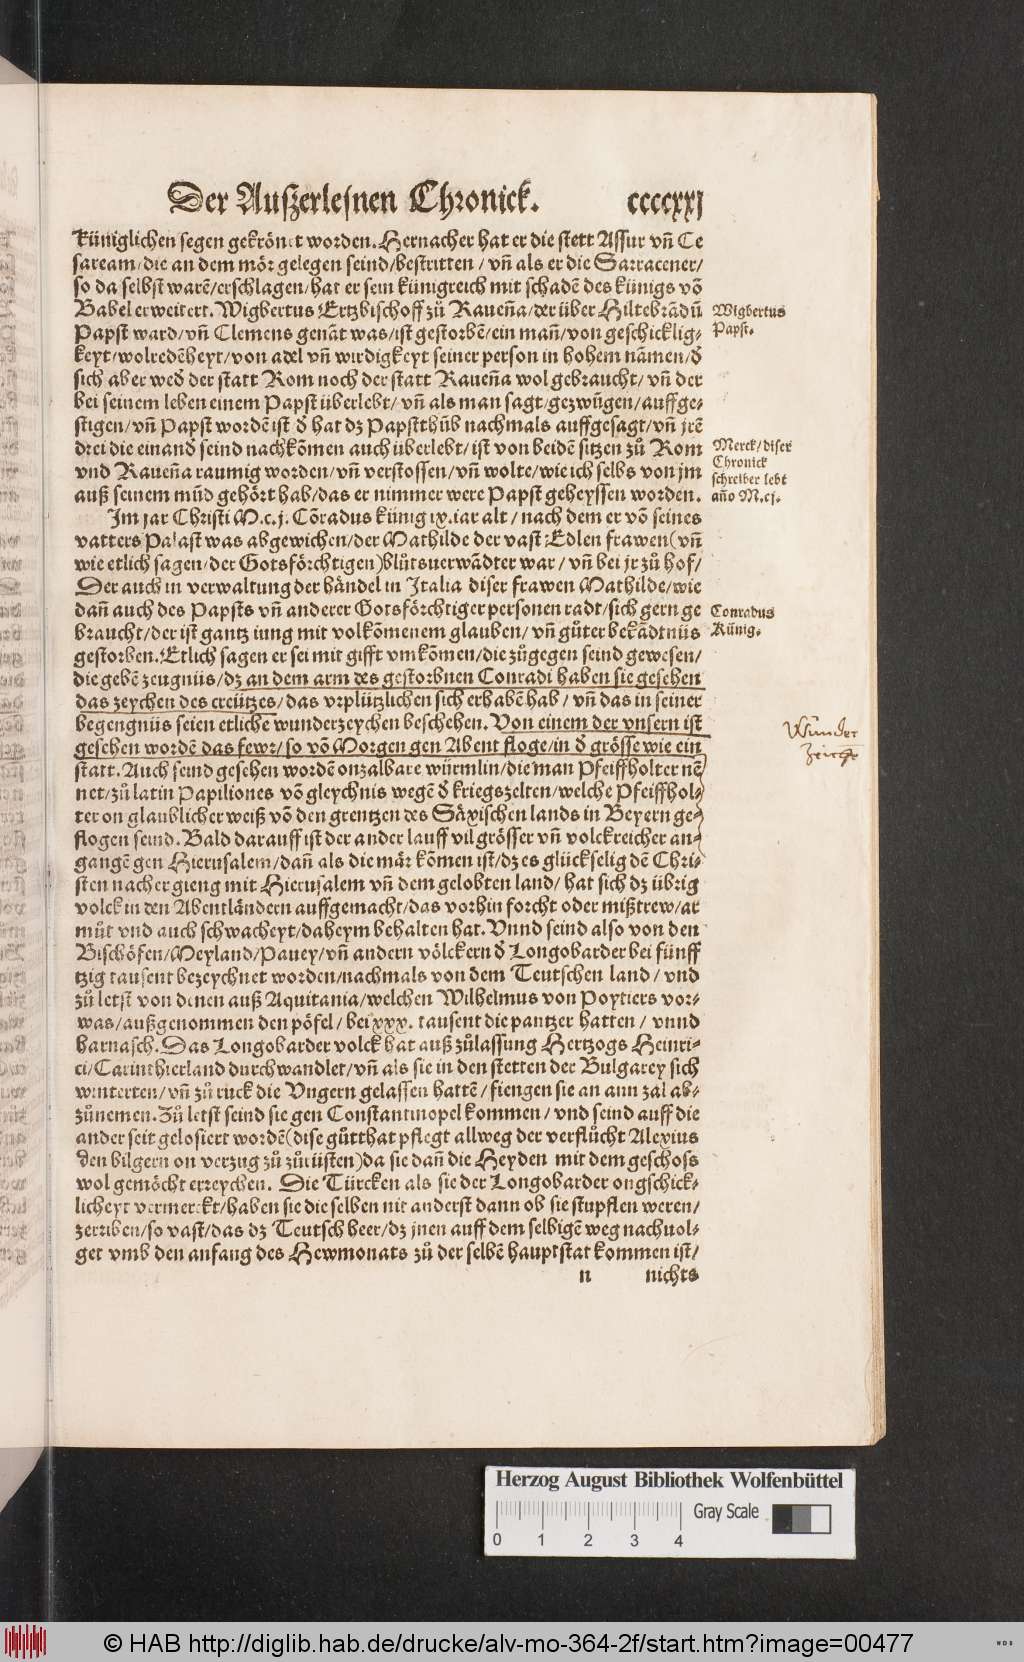 Der Außerlesnen Chronick. ccccxxj
küniglichen segen gekrönet worden. Hernacher hat er die stett Assur vñ Ce
saream/die an dem mör gelegen seind/bestritten/ vñ als er die Sarracener/
so da selbst warē/erschlagen/hat er sein künigreich mit schadē des künigs vō
Babel erweitert. Wigbertus Ertzbischoff zů Raueña/der über Hiltebrādū
Papst ward/vñ Clemens genāt was/ist gestorbē/ein mañ/von geschicklig-
keyt/wolredēheyt/von adel vñ wirdigkeyt seiner person in hohem nāmen/d̄
sich aber wed̄ der statt Rom noch der statt Raueña wol gebraucht/ vñ der
bei seinem leben einem Papst überlebt/ vñ als man sagt/gezwūgen/auffge-
stigen/vñ Papst wordē ist/ d̄ hat dz Papstthūb nachmals auffgesagt/vñ jrē
drei die einand̄ seind nachkōmen auch überlebt/ ist von beidē sitzen zů Rom
vnd Raueña raumig worden/vñ verstossen/vñ wolte/wie ich selbs von jm
auß seinem mūd gehört hab/das er nimmer were Papst geheyssen worden.
Im jar Christi M.c.j. Cōradus künig ix.iar alt/ nach dem er vō seines
vatters Palast was abgewichen/der Mathilde der vast Edlen frawen(vñ
wie etlich sagen/der Gotsförchtigen)blůtsuerwādter war/ vñ bei jr zů hof/
Der auch in verwaltung der händel in Italia diser frawen Mathilde/wie
dañ auch des Papsts vñ anderer Gotsförchtiger personen radt/sich gern ge
braucht/der ist gantz iung mit volkōmenem glauben/ vñ gůter bekādtnüs
gestorben. Etlich sagen er sei mit gifft vmkōmen/die zůgegen seind gewesen/
die gebē zeugnüs/dz an dem arm des gestorbnen Conradi haben sie gesehen
das zeychen des creützes/das vrplützlichen sich erhabē hab/ vñ das in seiner
begengnüs seien etliche wunderzeychen beschehen. Von einem der vnsern ist
gesehen wordē das fewr/so vō Morgen gen Abent floge/in d̄ grösse wie ein
statt. Auch seind gesehen wordē onzalbare würmlin/die man Pfeiffholter nē
net/zů latin Papiliones vō gleychnis wegē d̄ kriegszelten/welche Pfeiffhol-
ter on glaublicher weiß vō den grentzen des Säxischen lands in Beyern ge-
flogen seind. Bald darauff ist der ander lauff vil grösser vñ volckreicher an-
gangē gen Hierusalem/dañ als die mär kōmen ist/dz es glückselig dē Chri-
sten nacher gieng mit Hierusalem vñ dem gelobten land/ hat sich dz übrig
volck in den Abentländern auffgemacht/das vorhin forcht oder mißtrew/ar
můt vnd auch schwacheyt/daheym behalten hat. Vnnd seind also von den
Bischöfen/Meyland/Pauey/vñ andern völckern d̄ Longobarder bei fünff
tzig tausent bezeychnet worden/nachmals von dem Teutschen land/ vnd
zů letst von denen auß Aquitania/welchen Wilhelmus von Poytiers vor-
was/außgenommen den pöfel/ bei xxx. tausent die pantzer hatten/ vnnd
harnasch. Das Longobarder volck hat auß zůlassung Hertzogs Heinri-
ci/Carinthierland durchwandlet/vñ als sie in den stetten der Bulgarey sich
winterten/vñ zů ruck die Vngern gelassen hattē/ fiengen sie an ann zal ab-
zůnemen. Zů letst seind sie gen Constantinopel kommen/ vnd seind auff die
ander seit gelosiert wordē(dise gůtthat pflegt allweg der verflůcht Alexius
den bilgern on verzug zů zůrüsten)da sie dañ die Heyden mit dem geschoss
wol gemöcht erreychen. Die Türcken als sie der Longobarder ongschick-
licheyt vermerckt/haben sie die selben nit anderst dann ob sie stupflen weren/
zerriben/so vast/das dz Teutsch heer/dz jnen auff dem selbigē weg nachuol-
get vmb den anfang des Hewmonats zů der selbē hauptstat kommen ist/
n nichts
Wigbertus
Papst.
Merck/diser
Chronick
schreiber lebt
año M.cj.
Conradus
Künig.
Wunder
Zeiche
Herzog August Bibliothek Wolfenbüttel
0 1 2 3 4
Gray Scale
© HAB http://diglib.hab.de/drucke/alv-mo-364-2f/start.htm?image=00477